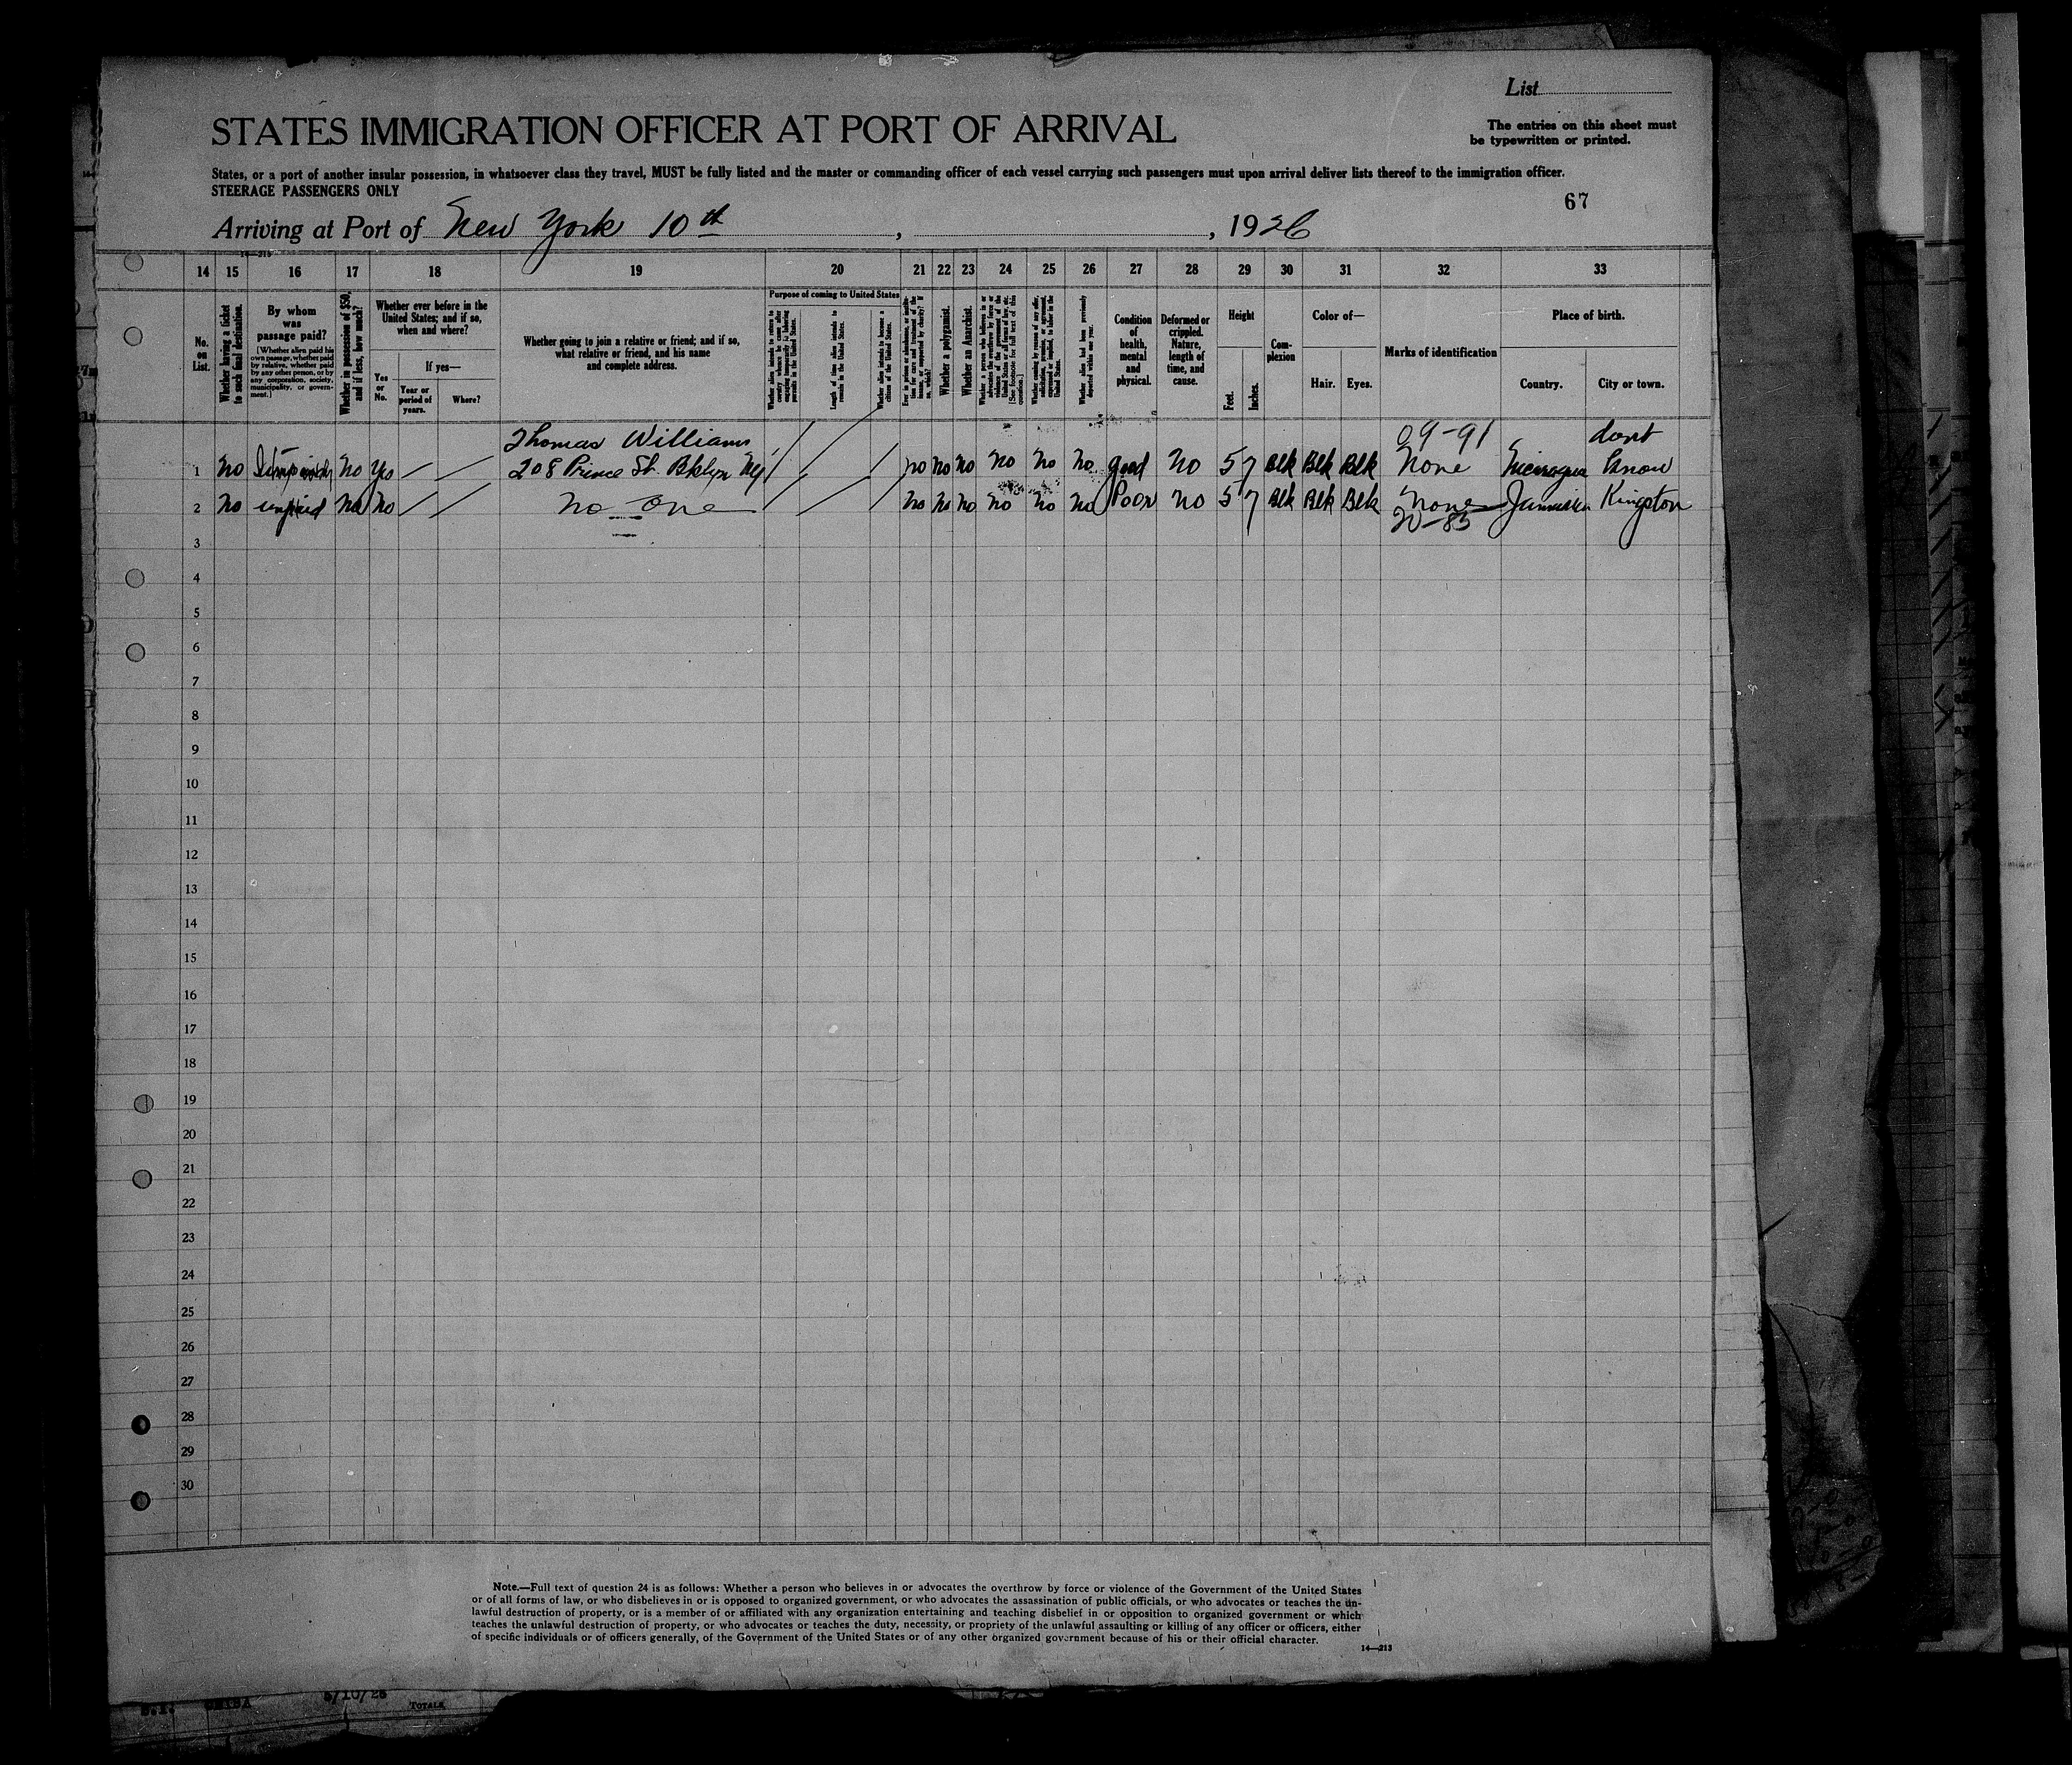 List
STATES IMMIGRATION OFFICER AT PORT OF ARRIVAL
The entries on this sheet must
be typewritten or printed.
States, or a port of another insular possession, in whatsoever class they travel, MUST be fully listed and the master or commanding officer of each vessel carrying such passengers must upon arrival deliver lists thereof to the immigration officer.
STEERAGE PASSENGERS ONLY
67
Arriving at Port of New York 10th , , 1926
14 15 16 17 18 19 20 21 22 23 24 25 26 27 28 29 30 31 32 33
No. on List.
Whether having a ticket to such final destination.
By whom was passage paid?
[Whether alien paid his own passage, whether paid by relative, whether paid by any other person, or by any corporation, society, municipality, or government.]
Whether in possession of $50, and if less, how much?
Whether ever before in the United States; and if so, when and where?
Yes or No.
If yes—
Year or period of years.
Where?
Whether going to join a relative or friend; and if so, what relative or friend, and his name and complete address.
Purpose of coming to United States
Length of time alien intends to remain in the United States.
Whether alien intends to become a citizen of the United States.
Whether a polygamist.
Whether an Anarchist.
Whether alien had been previously deported within one year.
Condition of health, mental and physical.
Deformed or crippled. Nature, length of time, and cause.
Height
Feet.
Inches.
Complexion
Color of—
Hair.
Eyes.
Marks of identification
Place of birth.
Country.
City or town.
Thomas Williams 09-91 dont
1 No No Yes — — 208 Prince St. Bklyn NY / / / no no no no no no good no 5 7 Blk Blk Blk None Nicaragua know
2 No unpaid No No / / no one / / / no no no no no no Poor no 5 7 Blk Blk Blk None Jamaica Kingston
20-85
3
4
5
6
7
8
9
10
11
12
13
14
15
16
17
18
19
20
21
22
23
24
25
26
27
28
29
30
Note.—Full text of question 24 is as follows: Whether a person who believes in or advocates the overthrow by force or violence of the Government of the United States
or of all forms of law, or who disbelieves in or is opposed to organized government, or who advocates the assassination of public officials, or who advocates or teaches the un-
lawful destruction of property, or is a member of or affiliated with any organization entertaining and teaching disbelief in or opposition to organized government or which
teaches the unlawful destruction of property, or who advocates or teaches the duty, necessity, or propriety of the unlawful assaulting or killing of any officer or officers, either
of specific individuals or of officers generally, of the Government of the United States or of any other organized government because of his or their official character.
14—213
Totals